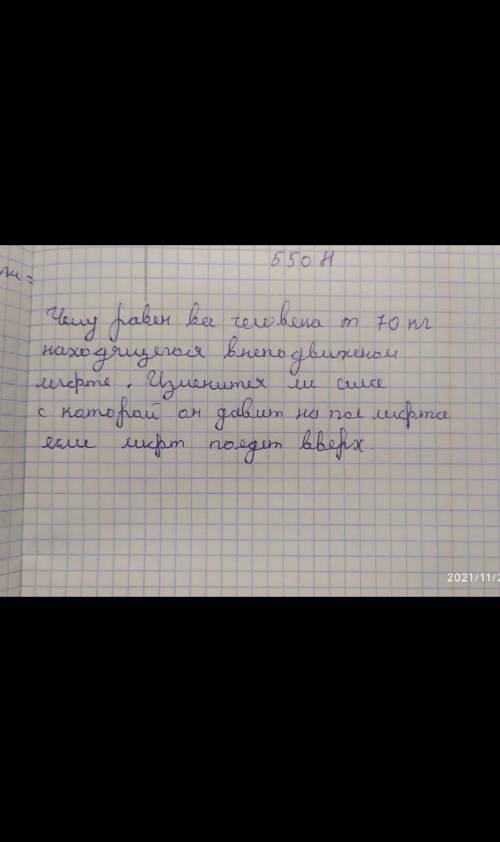 550 Н
м =
Чему равен вес человека m 70 кг
находящегося в неподвижном
лифте. Изменится ли сила
с которой он давит на пол лифта
если лифт поедет вверх.
2021/11/2